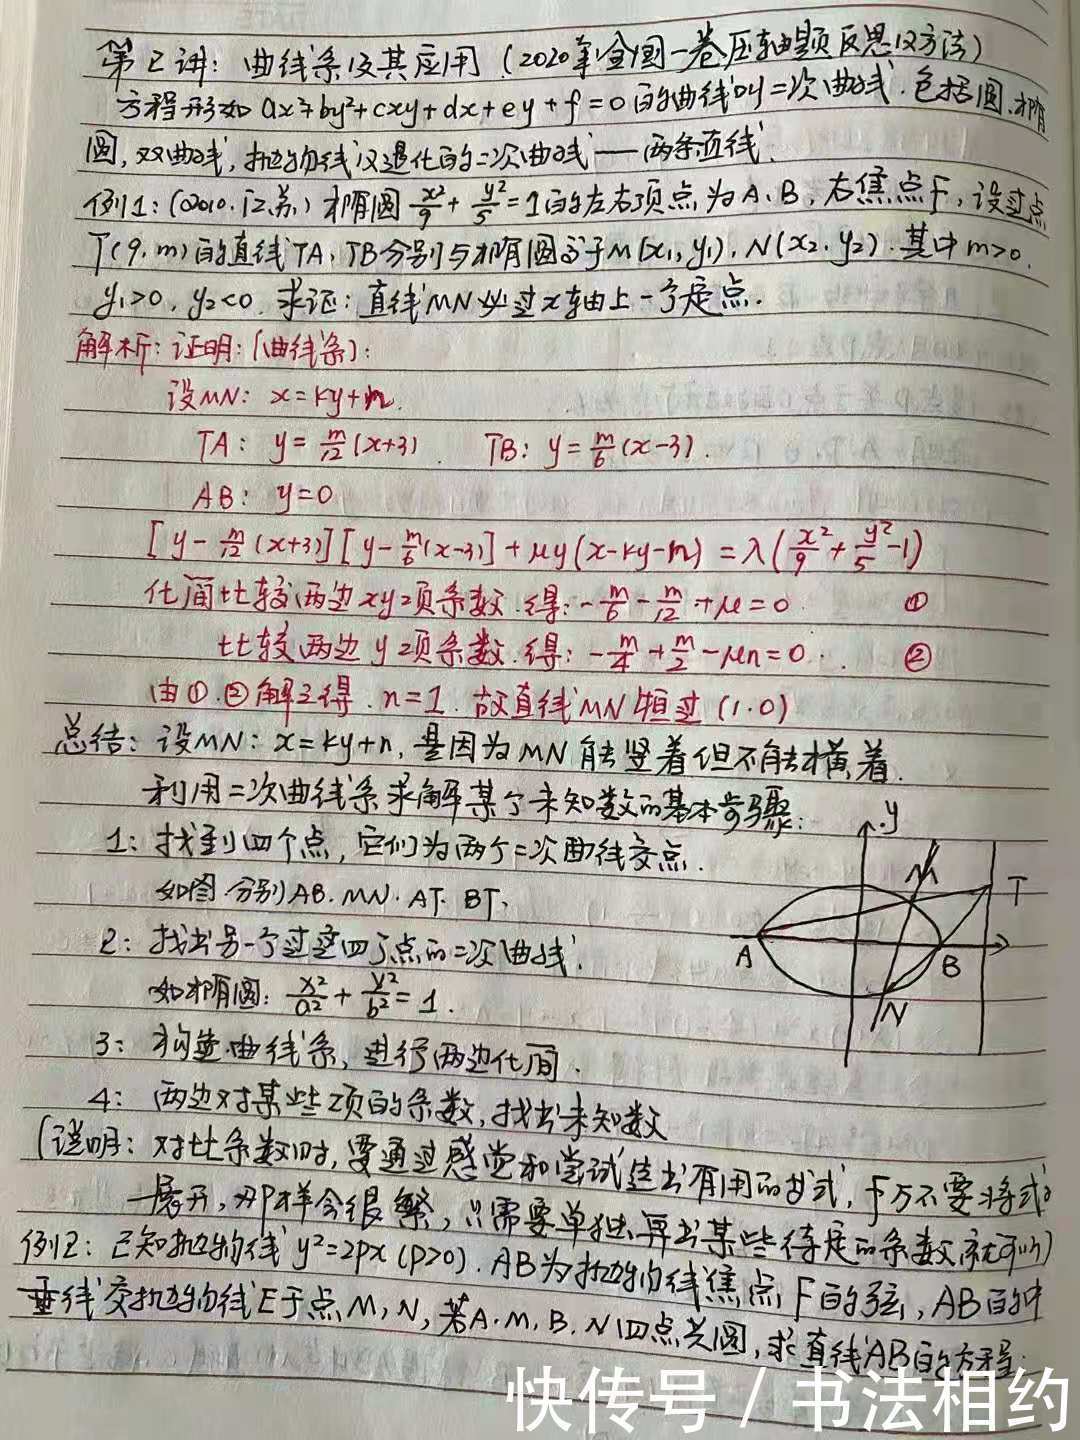 第2讲：曲线系及其应用（2020年全国一卷压轴题反思及方法）
方程形如 ax²+by²+cxy+dx+ey+f=0的曲线叫二次曲线.包括圆、椭
圆，双曲线，抛物线及退化的二次曲线——两条直线.
例1：(2010.江苏) 椭圆 x²/9 + y²/5 = 1的左右顶点为A、B，右焦点F，设过点
T(9,m)的直线TA、TB分别与椭圆交于M(x₁,y₁)、N(x₂,y₂).其中m>0,
y₁>0, y₂<0.求证：直线MN必过x轴上一个定点.
解析：证明：(曲线系)：
设MN：x=ky+n.
TA：y=m/12(x+3). TB：y=m/6(x-3).
AB：y=0
[y-m/12(x+3)][y-m/6(x-3)]+μy(x-ky-n)=λ(x²/9+y²/5-1)
化简比较两边xy项系数.得：-m/6-m/12+μ=0. ①
比较两边y项系数.得：-m/4+m/2-μn=0. ②
由①.②解之得.n=1.故直线MN恒过(1.0)
总结：设MN：x=ky+n，是因为MN能竖着但不能横着.
利用二次曲线系求解某个未知数的基本步骤：
1：找到四个点，它们为两个二次曲线交点.
如图.分别AB.MN.AT.BT.
2：找出另一个过这四个点的二次曲线.
如椭圆：x²/a²+y²/b²=1.
3：构造曲线系，进行两边化简.
4：两边对某些项的系数，找出未知数
(说明：对比系数时，要通过感觉和尝试选出有用的式，千万不要将式子
一展开，那样会很繁，只需要单独算出某些待定的系数就可以)
例2：已知抛物线y²=2px(p>0).AB为抛物线焦点F的弦，AB的中
垂线交抛物线E于点M，N，若A.M.B.N四点共圆，求直线AB的方程.
y
M
T
A
B
N
快传号 / 书法相约